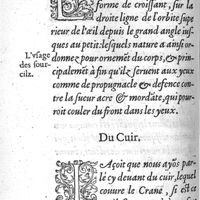 forme de croissant, sur la
droite ligne de l'orbite supe
rieur de l'œil depuis le grand angle ius-
ques au petit: lesquels nature a ansi or-
donnez pour ornemẽt du corps, & prin-
L'vsage
des sour-
cilz.
cipalemẽt à fin qu'ilz seruent aux yeux
comme de propugnacle & defence con-
tre la sueur acre & mordãte, qui pour-
roit couler du front dans les yeux.
Du Cuir.
IAçoit que nous ayõs par
lé cy deuant du cuir, lequel
couure le Crane, si est ce